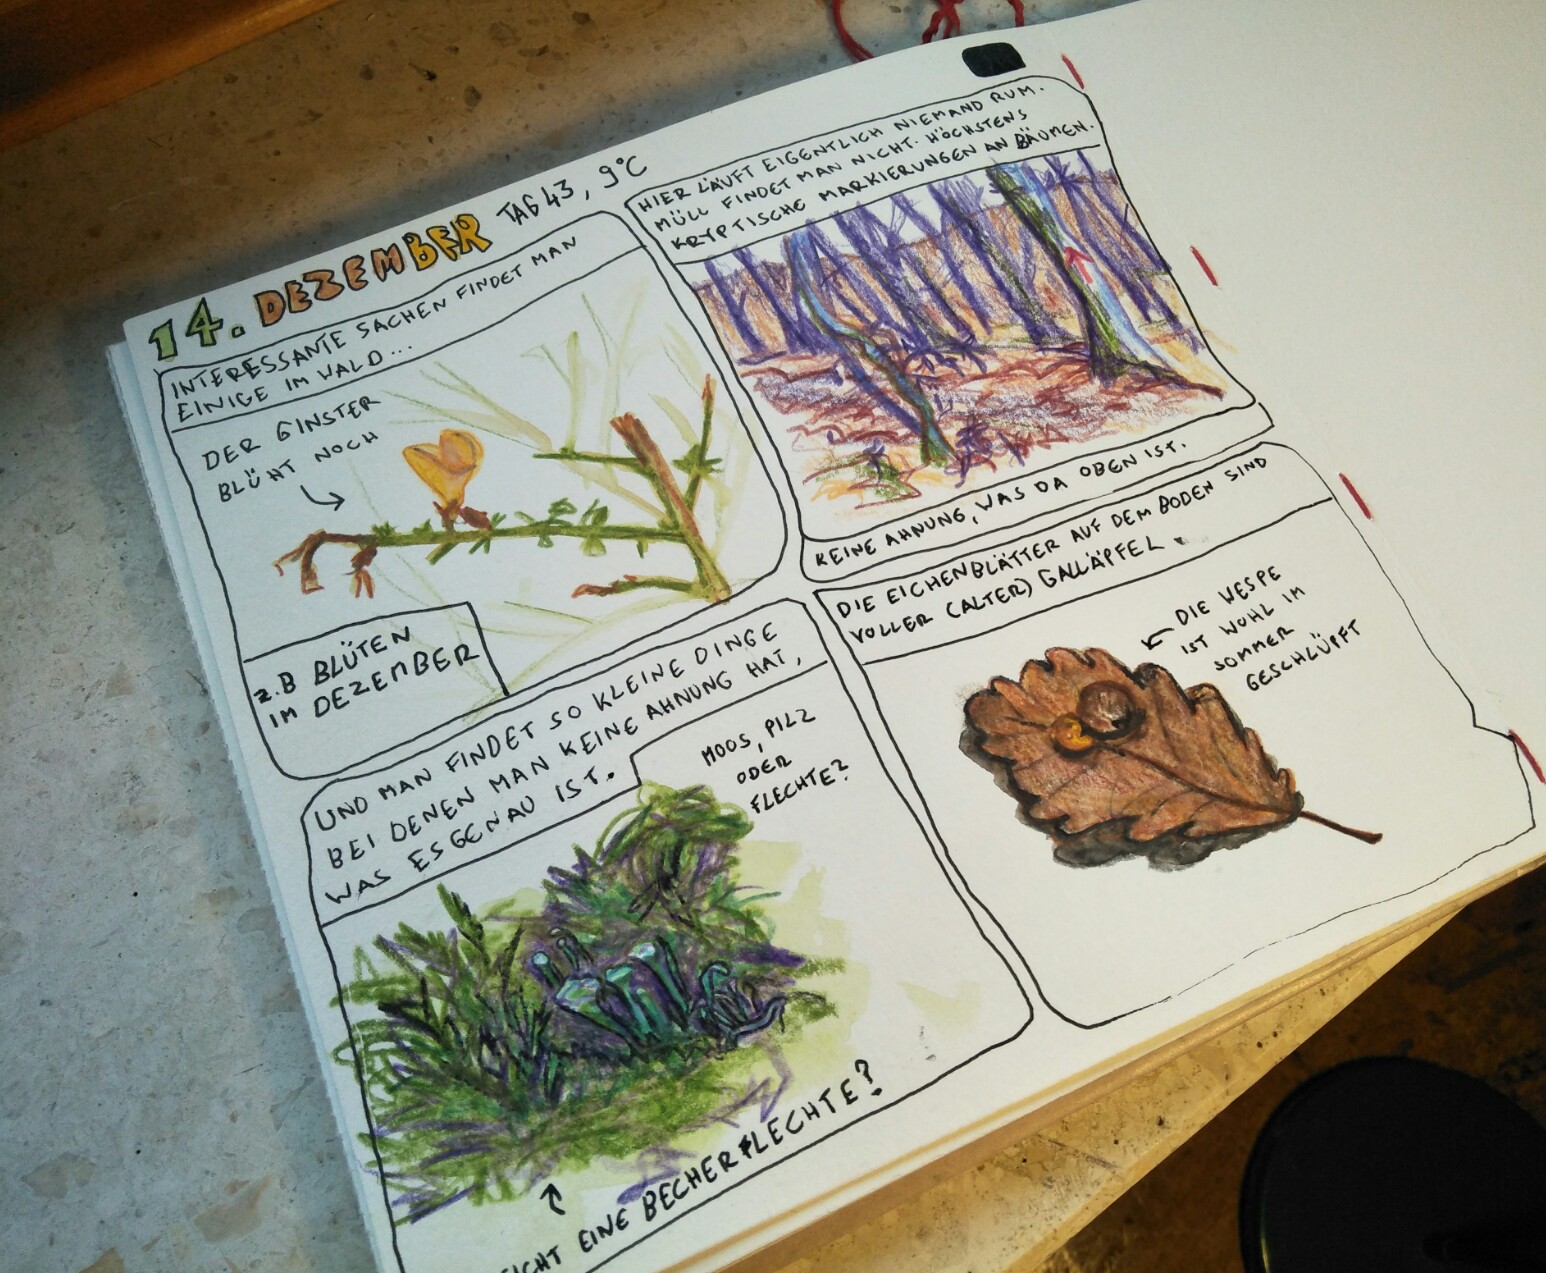 14. DEZEMBER TAG 43, 9°C
INTERESSANTE SACHEN FINDET MAN
EINIGE IM WALD...
DER GINSTER
BLÜHT NOCH
z.B BLÜTEN
IM DEZEMBER
HIER LÄUFT EIGENTLICH NIEMAND RUM.
MÜLL FINDET MAN NICHT. HÖCHSTENS
KRYPTISCHE MARKIERUNGEN AN BÄUMEN.
KEINE AHNUNG, WAS DA OBEN IST.
UND MAN FINDET SO KLEINE DINGE
BEI DENEN MAN KEINE AHNUNG HAT,
WAS ES GENAU IST.
MOOS, PILZ
ODER
FLECHTE?
EINE BECHERFLECHTE?
DIE EICHENBLÄTTER AUF DEM BODEN SIND
VOLLER (ALTER) GALLÄPFEL.
DIE WESPE
IST WOHL IM
SOMMER
GESCHLÜPFT